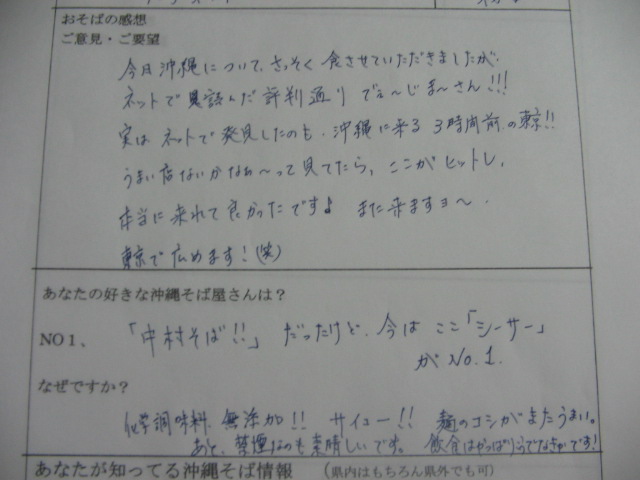 おそばの感想
ご意見・ご要望
今日沖縄について、さっそく食させていただきましたが、
ネットで見読んだ評判通り でぇ～じま～さん!!!
実はネットで発見したのも、沖縄に来る 3時間前の東京!!
うまい店ないかなぁ～って見てたら、ここがヒットし、
本当に来れて良かったです♪ また来ますヨ～.
東京で広めます!(笑)
あなたの好きな沖縄そば屋さんは？
NO１、 「中村そば!!」 だったけど、今は ここ「シーサー」
がNo.1.
なぜですか？
化学調味料 無添加!! サイコー!! 麺のコシがまたうまい。
あと、禁煙なのも素晴しいです。 飲食はやっぱりこうでなきゃです!
あなたが知ってる沖縄そば情報 （県内はもちろん県外でも可）